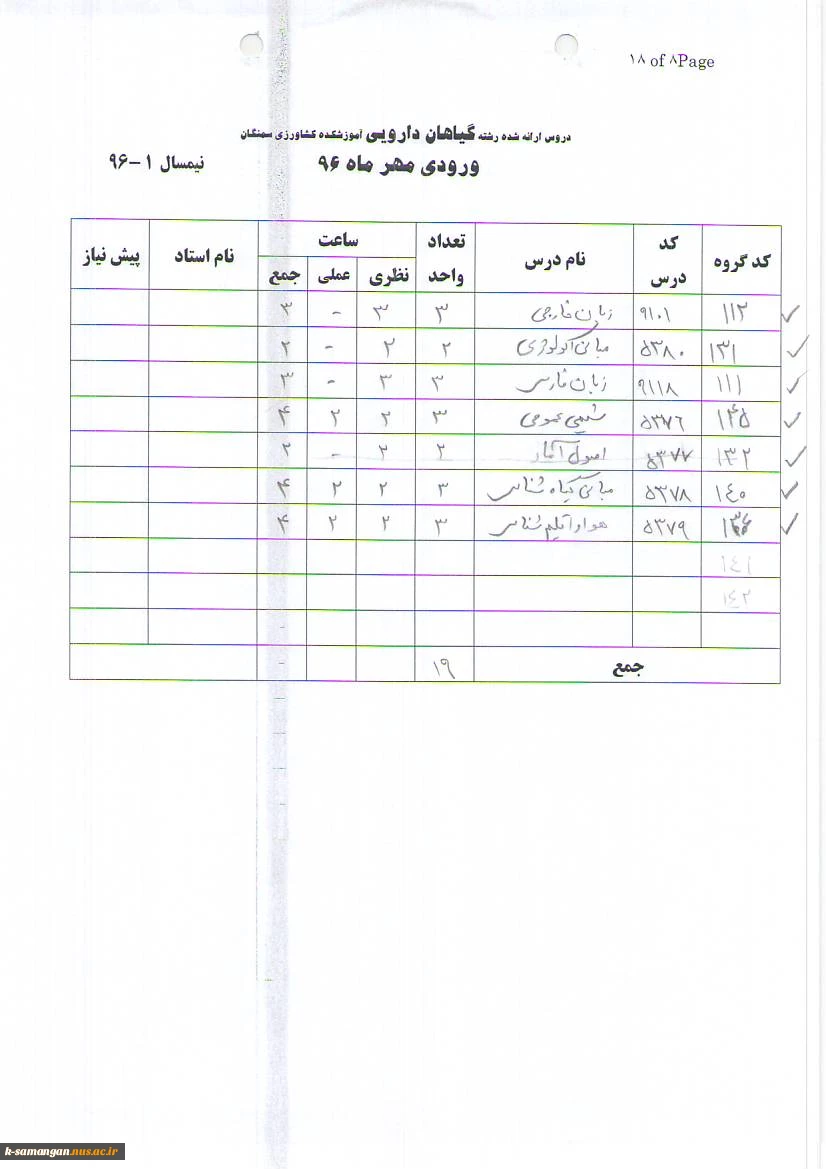 ۱۸ of ۸Page
دروس ارائه شده رشته گیاهان دارویی آموزشکده کشاورزی سمنگان
ورودی مهر ماه ۹۶ نیمسال ۱-۹۶
کد گروه کد درس نام درس تعداد واحد ساعت نام استاد پیش نیاز
نظری عملی جمع
۱۱۲ ۹۱۰۱ زبان خارجی ۳ ۳ - ۳
۱۳۱ ۵۳۸۰ مبانی اکولوژی ۲ ۲ - ۲
۱۱۱ ۹۱۱۸ زبان فارسی ۳ ۳ - ۳
۱۴۵ ۵۳۷۶ شیمی عمومی ۳ ۲ ۲ ۴
۱۳۲ ۵۳۷۷ اصول آمار ۲ ۲ - ۲
۱۴۰ ۵۳۷۸ مبانی گیاه شناسی ۳ ۲ ۲ ۴
۵۳۷۹ هوا و اقلیم شناسی ۳ ۲ ۲ ۴
۱۴۱
۱۴۲
جمع ۱۹ -
k-samangan.nus.ac.ir